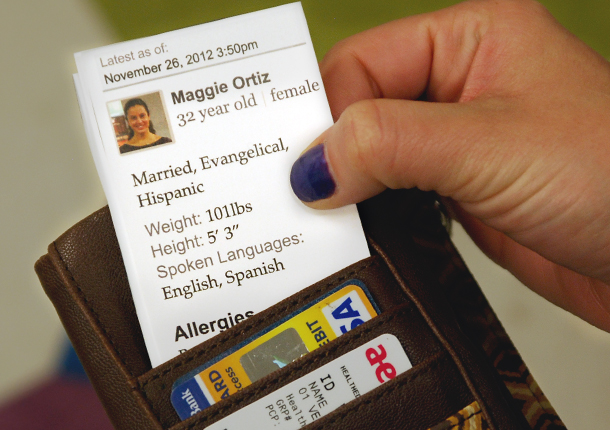 Latest as of:
November 26, 2012 3:50pm
Maggie Ortiz
32 year old | female
Married, Evangelical,
Hispanic
Weight: 101lbs
Height: 5' 3"
Spoken Languages:
English, Spanish
Allergies
VISA
DEBIT
CARD
Bank
ID
NAME
01 VE
Health
GRP#
PCP:
HEALTH